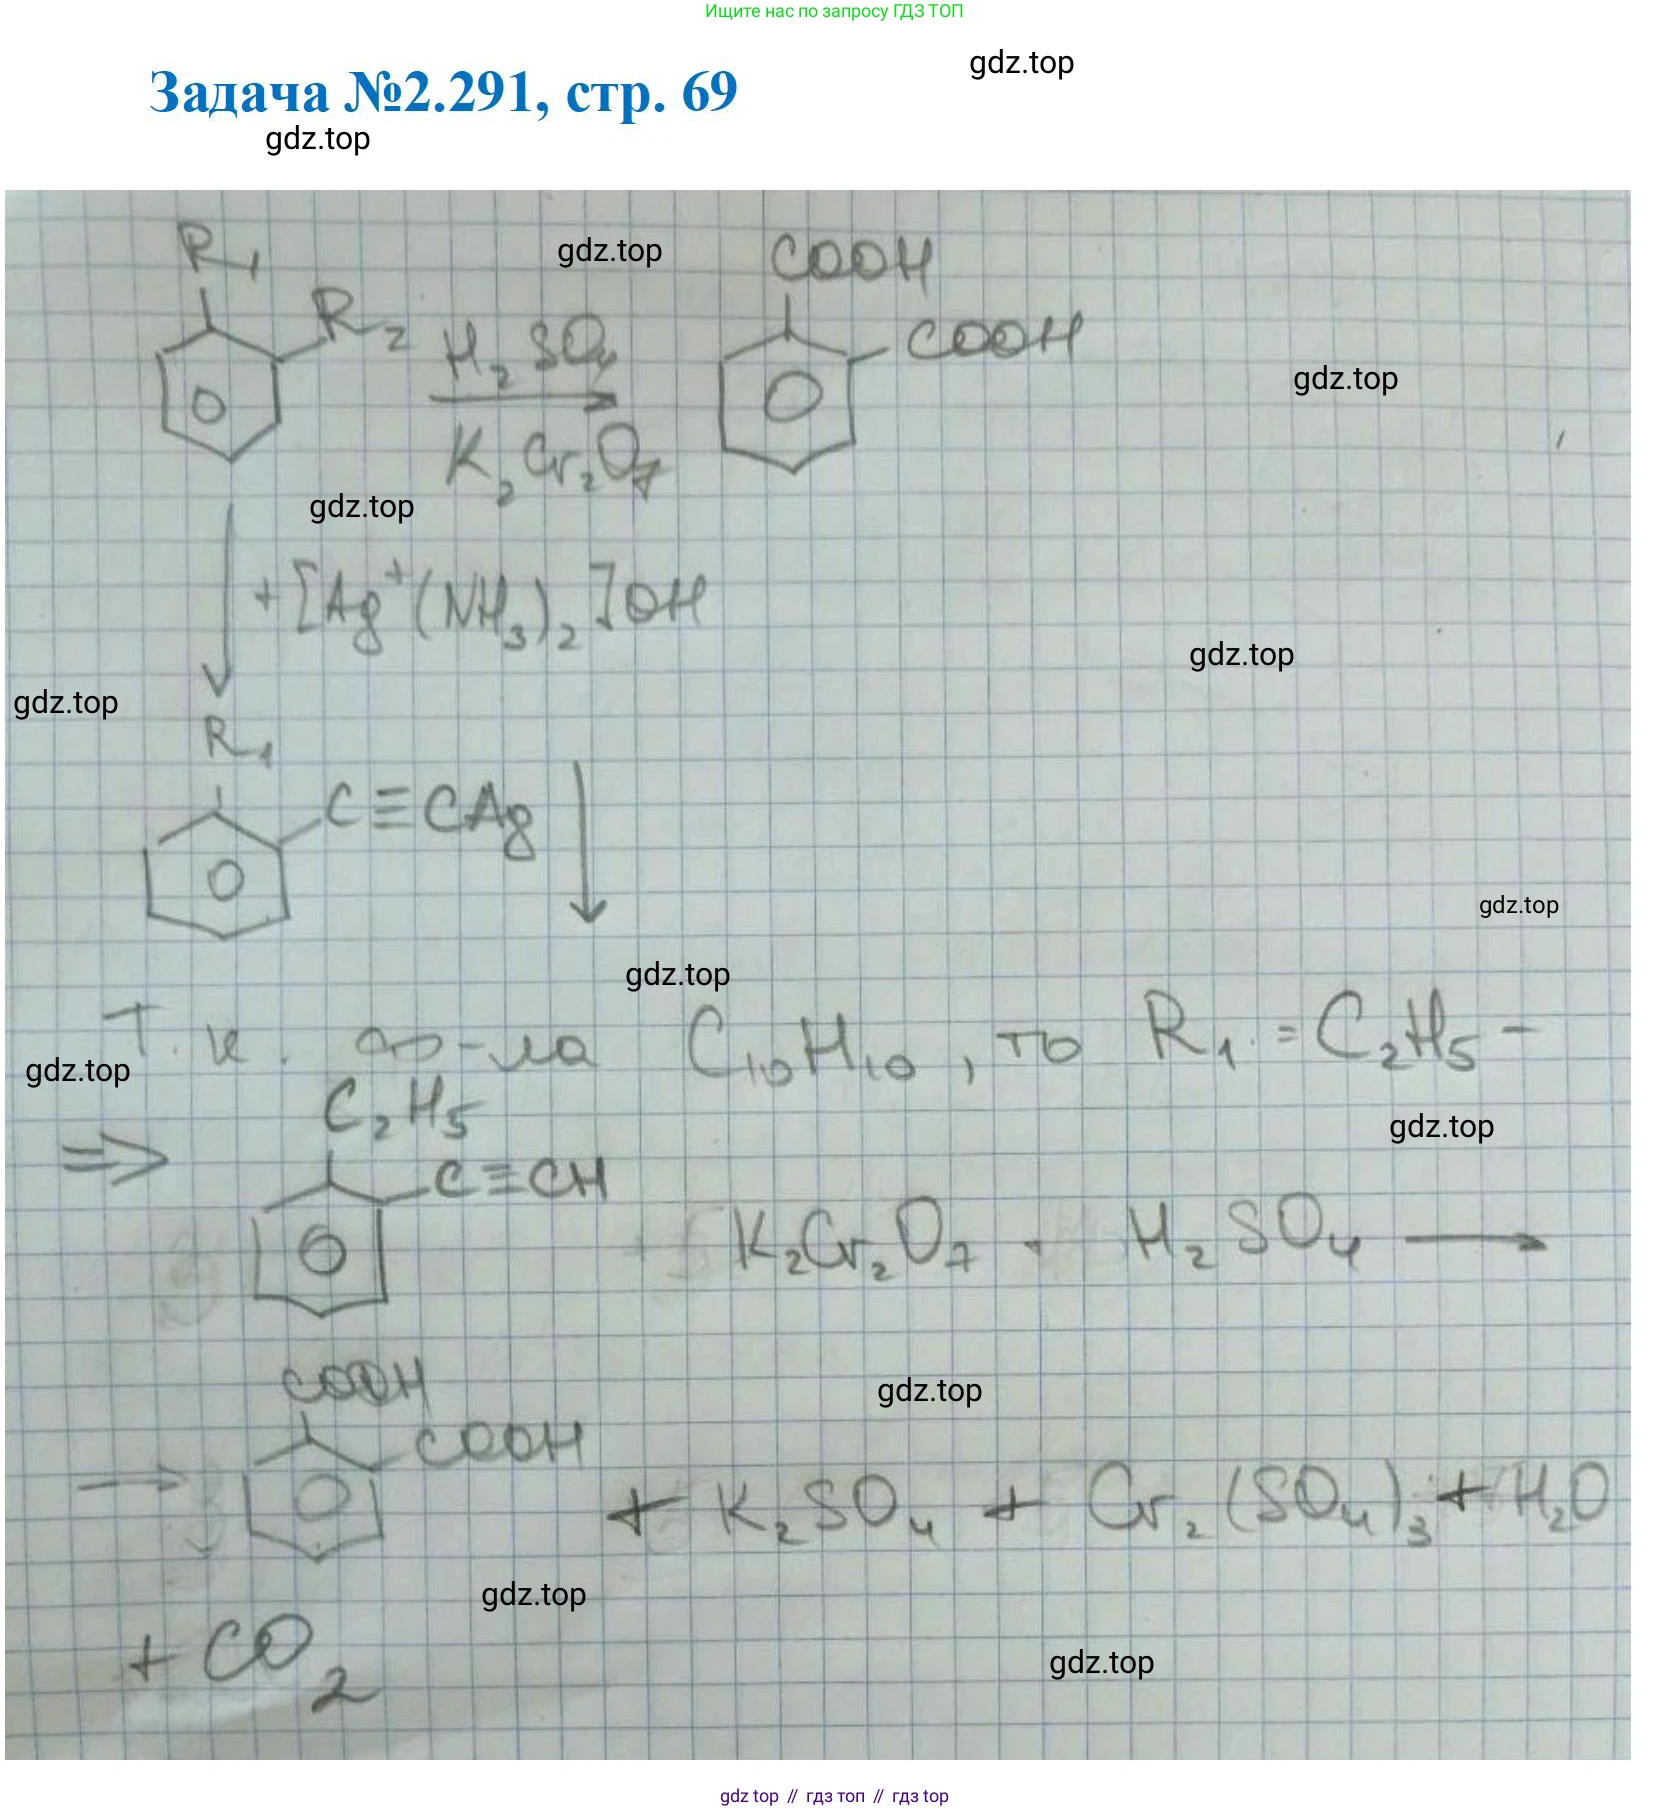 Ищите нас по запросу ГДЗ ТОП
gdz.top
Задача №2.291, стр. 69
gdz.top
R₁
gdz.top
COOH
R₂
H₂SO₄
COOH
gdz.top
K₂Cr₂O₇
gdz.top
+ [Ag⁺(NH₃)₂]OH
gdz.top
gdz.top
R₁
C≡CAg
gdz.top
gdz.top
Т.к. ф-ла C₁₀H₁₀, то R₁ = C₂H₅ –
gdz.top
C₂H₅
gdz.top
⇒
C≡CH
K₂Cr₂O₇ + H₂SO₄ →
COOH
gdz.top
COOH
→ + K₂SO₄ + Cr₂(SO₄)₃ + H₂O
gdz.top
+ CO₂
gdz.top
gdz top // гдз топ // гдз top